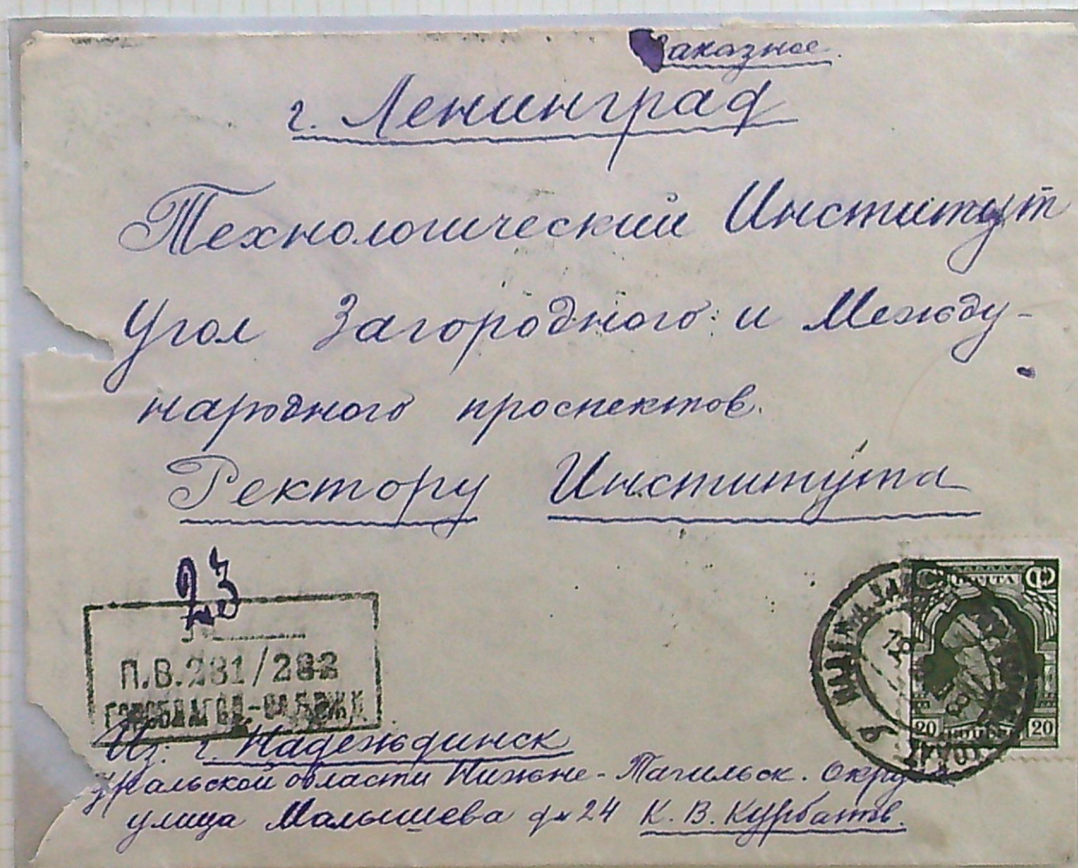 Заказное.
г. Ленинград
Технологический Институт
Угол Загородного и Между-
народного проспектов.
Ректору Института
23
П.В.281/282
Из г. Надеждинск
Уральской области Нижне-Тагильск. округ
улица Малышева д. 24 К. В. Курбатов.
ПОЧТА
20 20